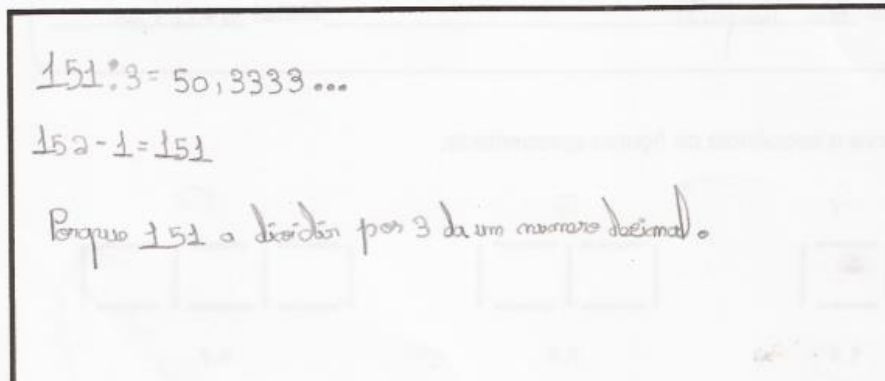 151:3=50,3333...
152-1=151
Porque 151 a dividir por 3 da um numero decimal.